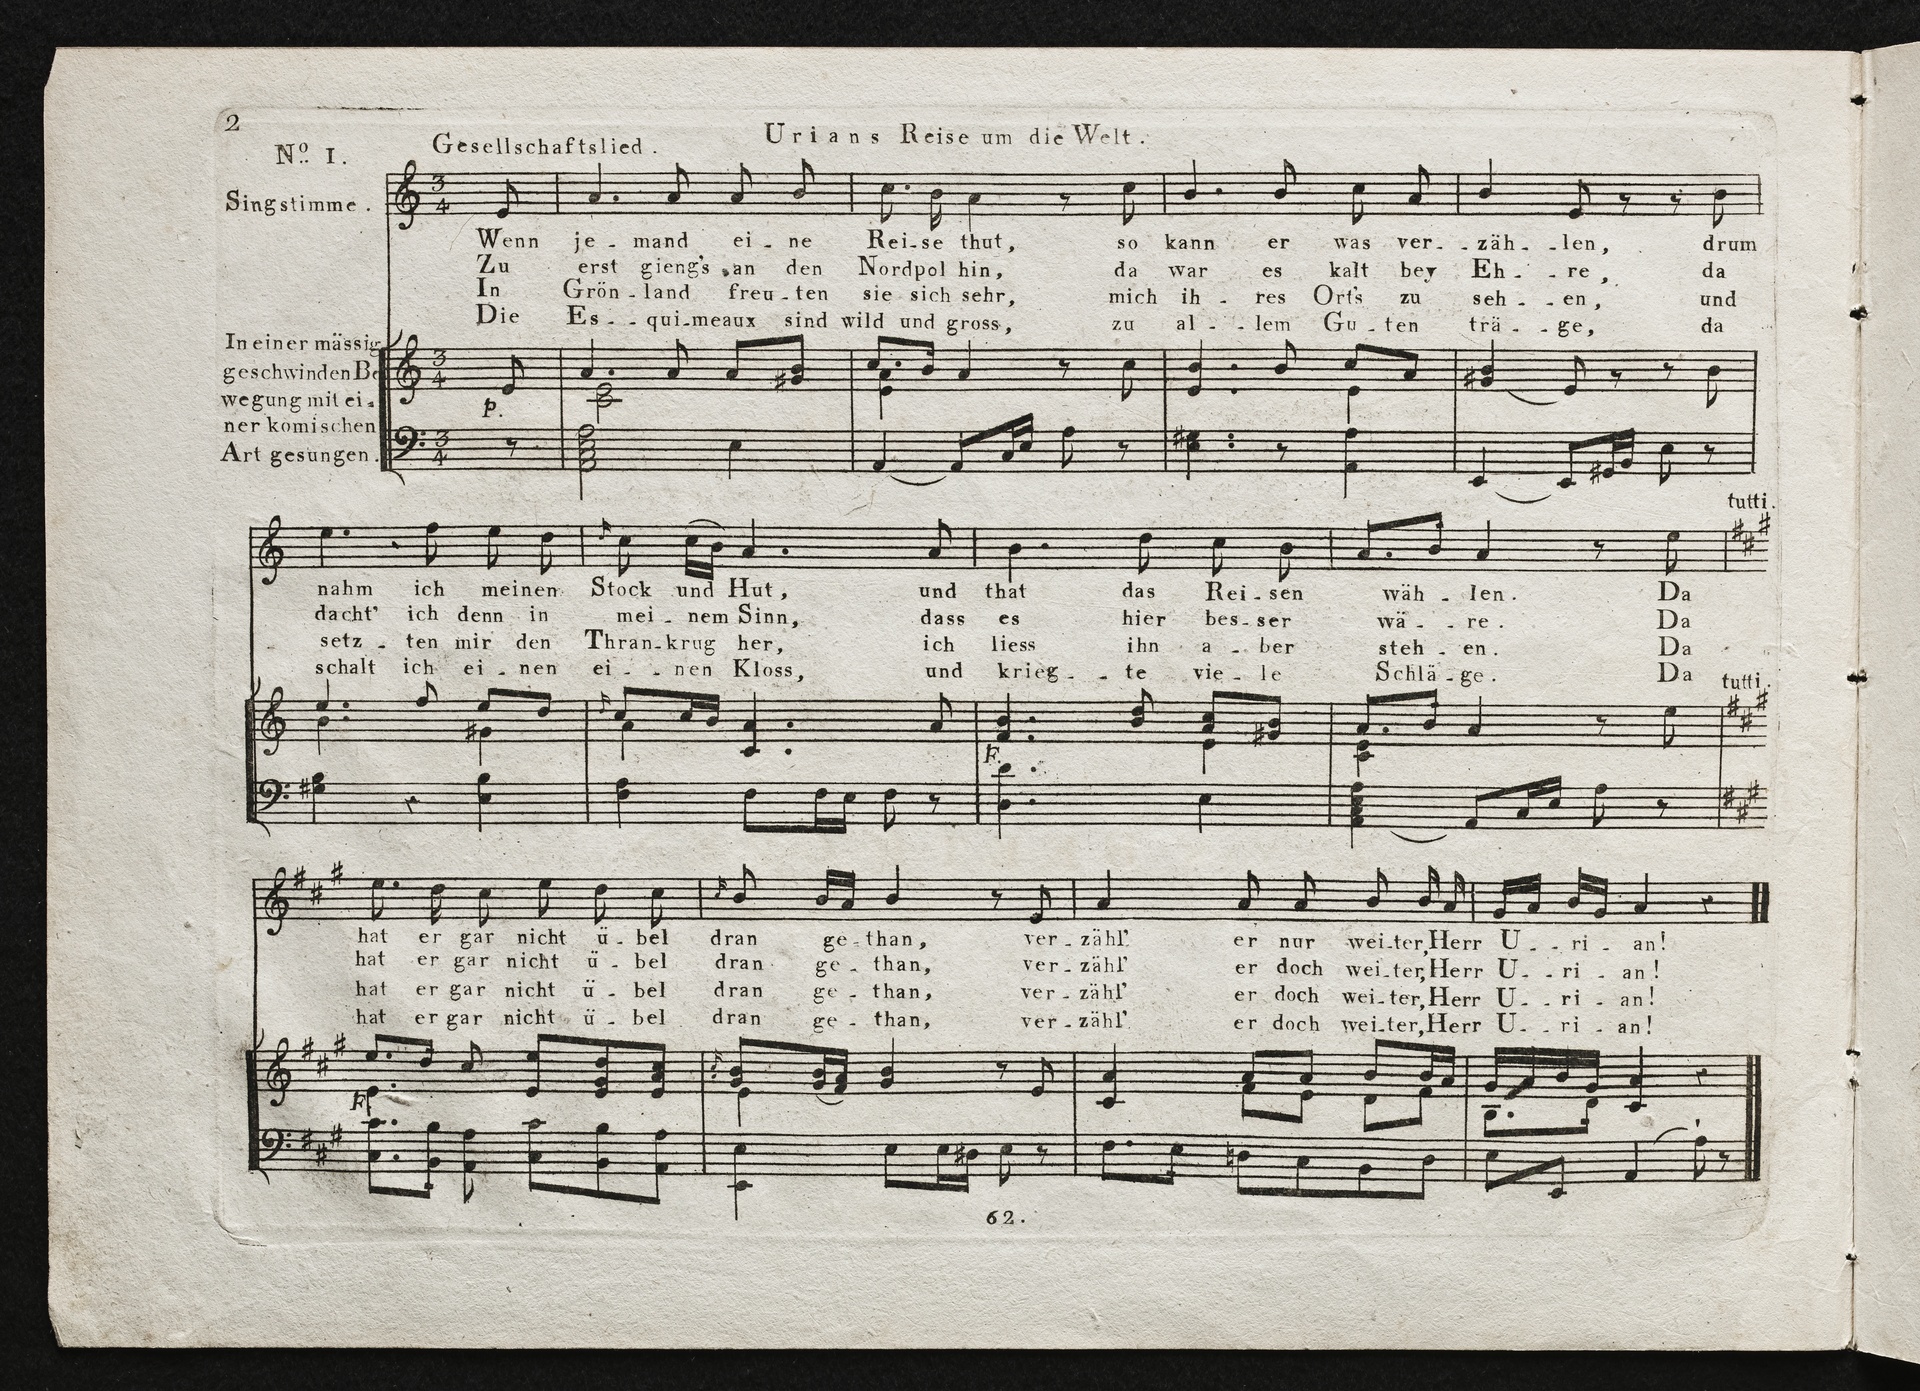 2
Urians Reise um die Welt.
No. 1.
Gesellschaftslied.
Singstimme.
3
4
Wenn je - mand ei - ne Rei - se thut, so kann er was ver - - zäh - - len, drum
Zu erst gieng's an den Nordpol hin, da war es kalt bey Eh - - re, da
In Grön - land freu - ten sie sich sehr, mich ih - res Orts zu seh - - en, und
Die Es - - qui - meaux sind wild und gross, zu al - - lem Gu - ten trä - - ge, da
In einer mässig
geschwinden Be
wegung mit ei -
ner komischen
Art gesungen.
3
4
p.
3
4
tutti.
nahm ich meinen Stock und Hut, und that das Rei - sen wäh - len. Da
dacht' ich denn in mei - nem Sinn, dass es hier bes - ser wä - - re. Da
setz - ten mir den Thran - krug her, ich liess ihn a - ber steh - en. Da
schalt ich ei - nen ei - - nen Kloss, und krieg - - te vie - le Schlä - ge. Da
tutti.
F.
hat er gar nicht ü - bel dran ge - than, ver - zähl' er nur wei - ter, Herr U - - ri - an!
hat er gar nicht ü - bel dran ge - than, ver - zähl' er doch wei - ter, Herr U - - ri - an!
hat er gar nicht ü - bel dran ge - than, ver - zähl' er doch wei - ter, Herr U - - ri - an!
hat er gar nicht ü - bel dran ge - than, ver - zähl' er doch wei - ter, Herr U - - ri - an!
F.
62.